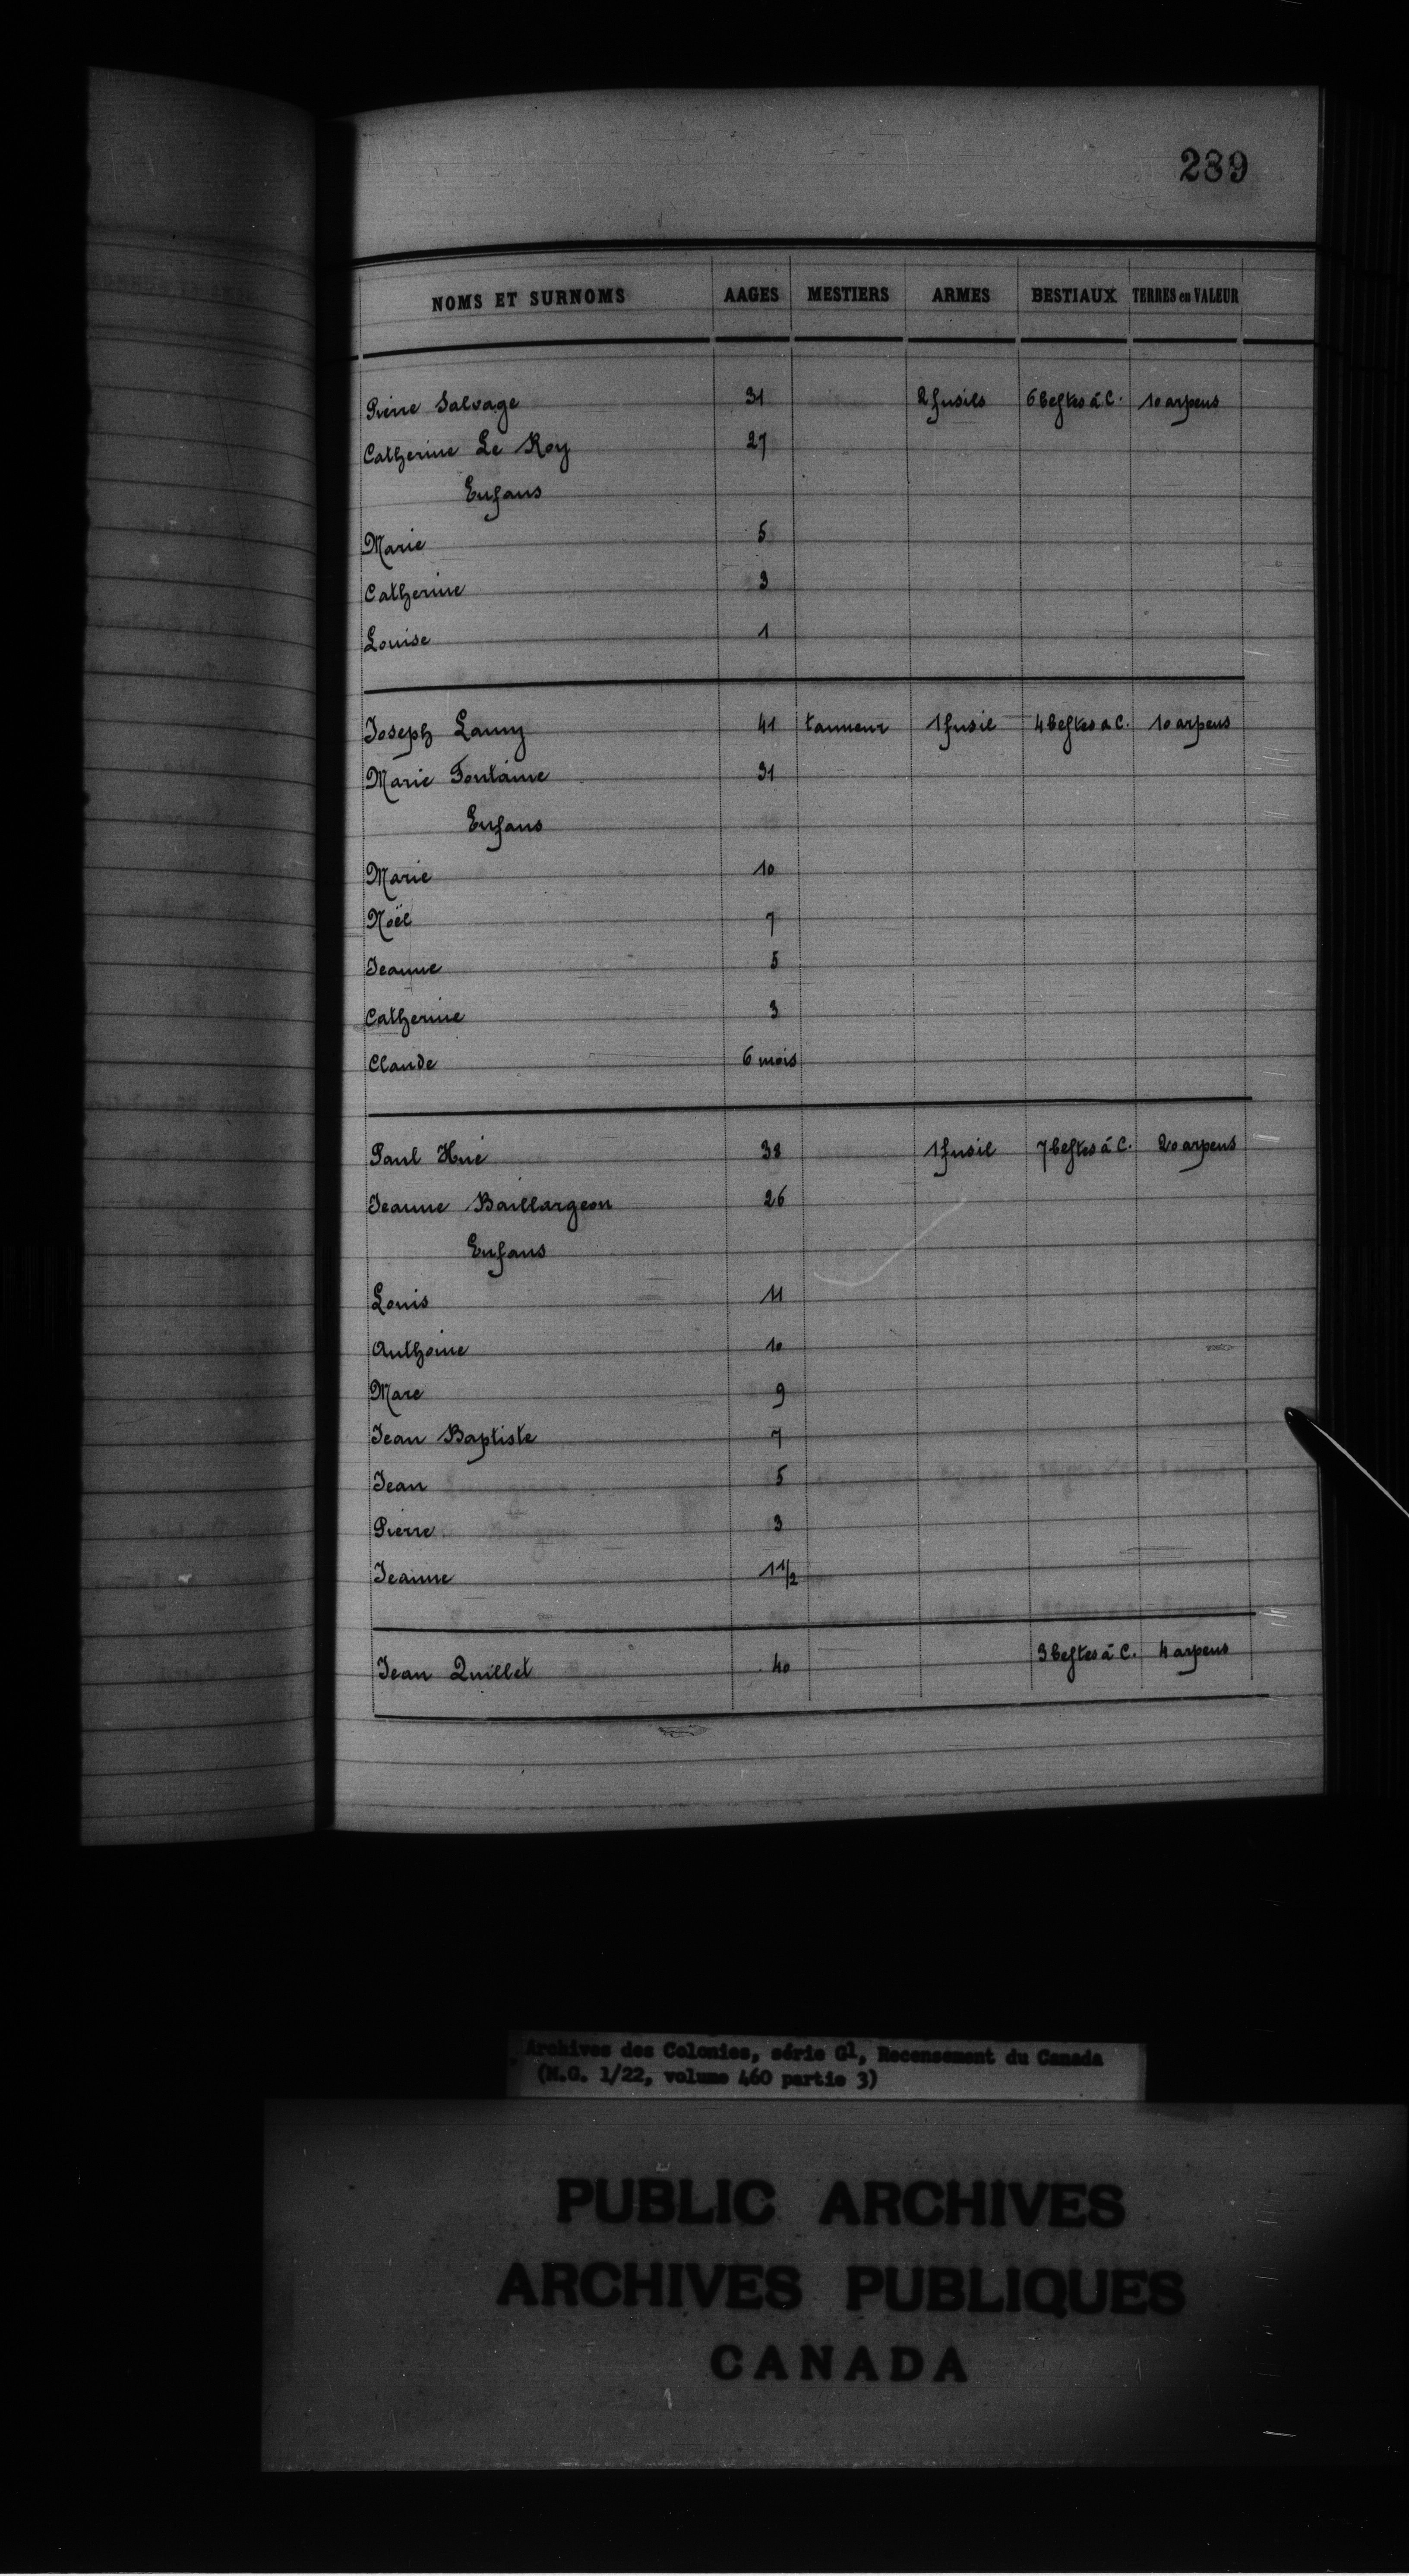 239
NOMS ET SURNOMS AAGES MESTIERS ARMES BESTIAUX TERRES en VALEUR
Pierre Salvage 31 2 fusils 6 bestes à C. 10 arpens
Catherine Le Roy 27
Enfans
Marie 5
Catherine 3
Louise 1
Joseph Lamy 41 tanneur 1 fusil 4 bestes a C. 10 arpens
Marie Fontaine 31
Enfans
Marie 10
Noël 7
Jeanne 5
Catherine 3
Claude 6 mois
Paul Hué 38 1 fusil 7 bestes à C. 20 arpens
Jeanne Baillargeon 26
Enfans
Louis 11
Anthoine 10
Marc 9
Jean Baptiste 7
Jean 5
Pierre 3
Jeanne 1 1/2
Jean Quillet 40 3 bestes à C. 4 arpens
Archives des Colonies, série G1, Recensement du Canada
(M.G. 1/22, volume 460 partie 3)
PUBLIC ARCHIVES
ARCHIVES PUBLIQUES
CANADA